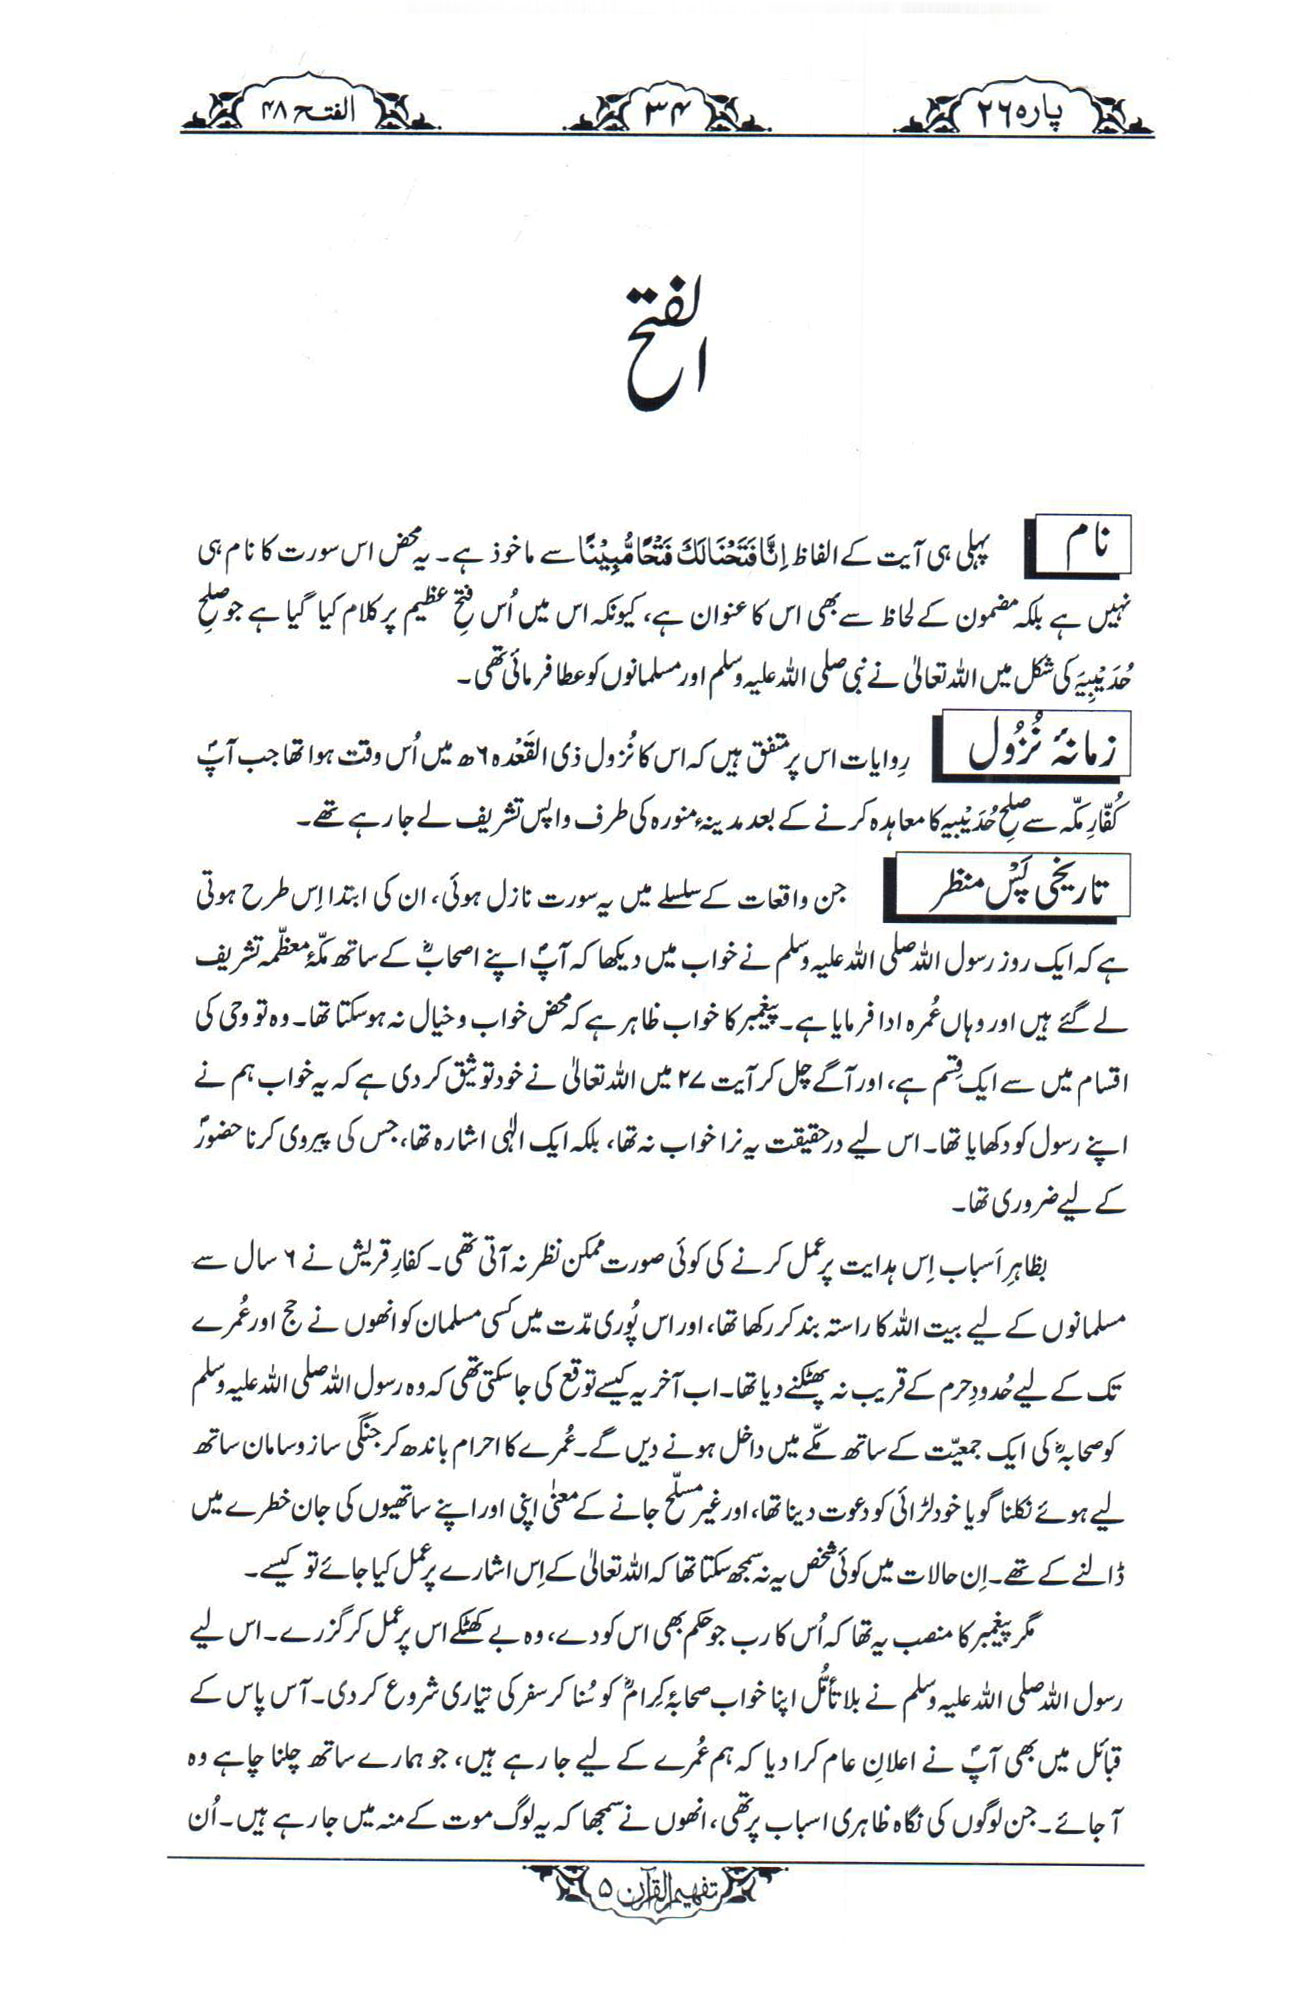 پارہ ۲۶
۳۴
الفتح ۴۸
الفتح
نام
پہلی ہی آیت کے الفاظ اِنَّا فَتَحْنَا لَكَ فَتْحًا مُّبِيْنًا سے ماخوذ ہے۔ یہ محض اس سورت کا نام ہی
نہیں ہے بلکہ مضمون کے لحاظ سے بھی اس کا عنوان ہے، کیونکہ اس میں اُس فتحِ عظیم پر کلام کیا گیا ہے جو صلحِ
حُدَیْبِیَہ کی شکل میں اللہ تعالیٰ نے نبی صلی اللہ علیہ وسلم اور مسلمانوں کو عطا فرمائی تھی۔
زمانۂ نُزُول
رِوایات اس پر متفق ہیں کہ اس کا نُزول ذی القَعْدہ ۶ھ میں اُس وقت ہوا تھا جب آپؐ
کُفّارِ مکّہ سے صلحِ حُدَیْبِیہ کا معاہدہ کرنے کے بعد مدینۂ منورہ کی طرف واپس تشریف لے جا رہے تھے۔
تاریخی پَسْ منظر
جن واقعات کے سلسلے میں یہ سورت نازل ہوئی، ان کی ابتدا اِس طرح ہوتی
ہے کہ ایک روز رسول اللہ صلی اللہ علیہ وسلم نے خواب میں دیکھا کہ آپؐ اپنے اصحابؓ کے ساتھ مکّۂ معظّمہ تشریف
لے گئے ہیں اور وہاں عُمرہ ادا فرمایا ہے۔ پیغمبر کا خواب ظاہر ہے کہ محض خواب و خیال نہ ہو سکتا تھا۔ وہ تو وحی کی
اقسام میں سے ایک قِسم ہے، اور آگے چل کر آیت ۲۷ میں اللہ تعالیٰ نے خود توثیق کر دی ہے کہ یہ خواب ہم نے
اپنے رسول کو دکھایا تھا۔ اس لیے درحقیقت یہ نرا خواب نہ تھا، بلکہ ایک الٰہی اشارہ تھا، جس کی پیروی کرنا حضورؐ
کے لیے ضروری تھا۔
بظاہرِ اَسباب اِس ہدایت پر عمل کرنے کی کوئی صورت ممکن نظر نہ آتی تھی۔ کفارِ قریش نے ۶ سال سے
مسلمانوں کے لیے بیت اللہ کا راستہ بند کر رکھا تھا، اور اس پُوری مدّت میں کسی مسلمان کو انھوں نے حج اور عُمرے
تک کے لیے حُدودِ حرم کے قریب نہ پھٹکنے دیا تھا۔ اب آخر یہ کیسے توقع کی جا سکتی تھی کہ وہ رسول اللہ صلی اللہ علیہ وسلم
کو صحابہؓ کی ایک جمعیّت کے ساتھ مکّے میں داخل ہونے دیں گے۔ عُمرے کا احرام باندھ کر جنگی ساز و سامان ساتھ
لیے ہوئے نکلنا گویا خود لڑائی کو دعوت دینا تھا، اور غیر مسلّح جانے کے معنیٰ اپنی اور اپنے ساتھیوں کی جان خطرے میں
ڈالنے کے تھے۔ اِن حالات میں کوئی شخص یہ نہ سمجھ سکتا تھا کہ اللہ تعالیٰ کے اِس اشارے پر عمل کیا جائے تو کیسے۔
مگر پیغمبر کا منصب یہ تھا کہ اُس کا رب جو حکم بھی اس کو دے، وہ بے کھٹکے اس پر عمل کر گزرے۔ اس لیے
رسول اللہ صلی اللہ علیہ وسلم نے بلا تأمُّل اپنا خواب صحابۂ کِرامؓ کو سُنا کر سفر کی تیاری شروع کر دی۔ آس پاس کے
قبائل میں بھی آپؐ نے اعلانِ عام کرا دیا کہ ہم عُمرے کے لیے جا رہے ہیں، جو ہمارے ساتھ چلنا چاہے وہ
آ جائے۔ جن لوگوں کی نگاہ ظاہری اسباب پر تھی، انھوں نے سمجھا کہ یہ لوگ موت کے منہ میں جا رہے ہیں۔ اُن
تفہیم القرآن ۵